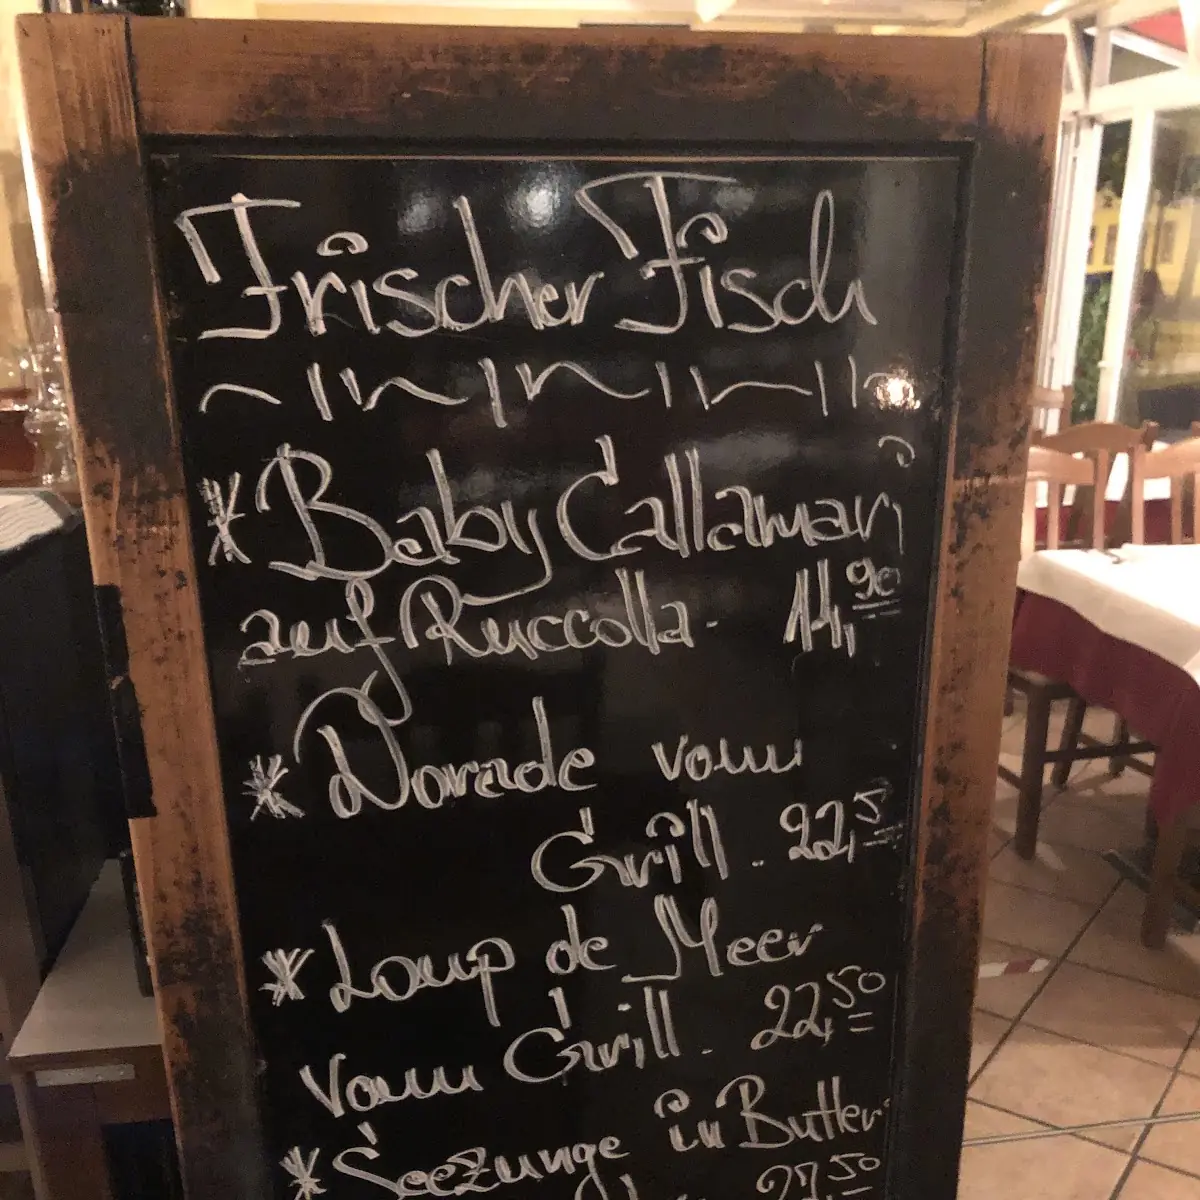 Frischer Fisch
* Baby Callamari
auf Ruccolla - 14,90
* Dorade vom
Grill - 22,5
* Loup de Meer
vom Grill - 22,50
* Seezunge in Butter
27,50